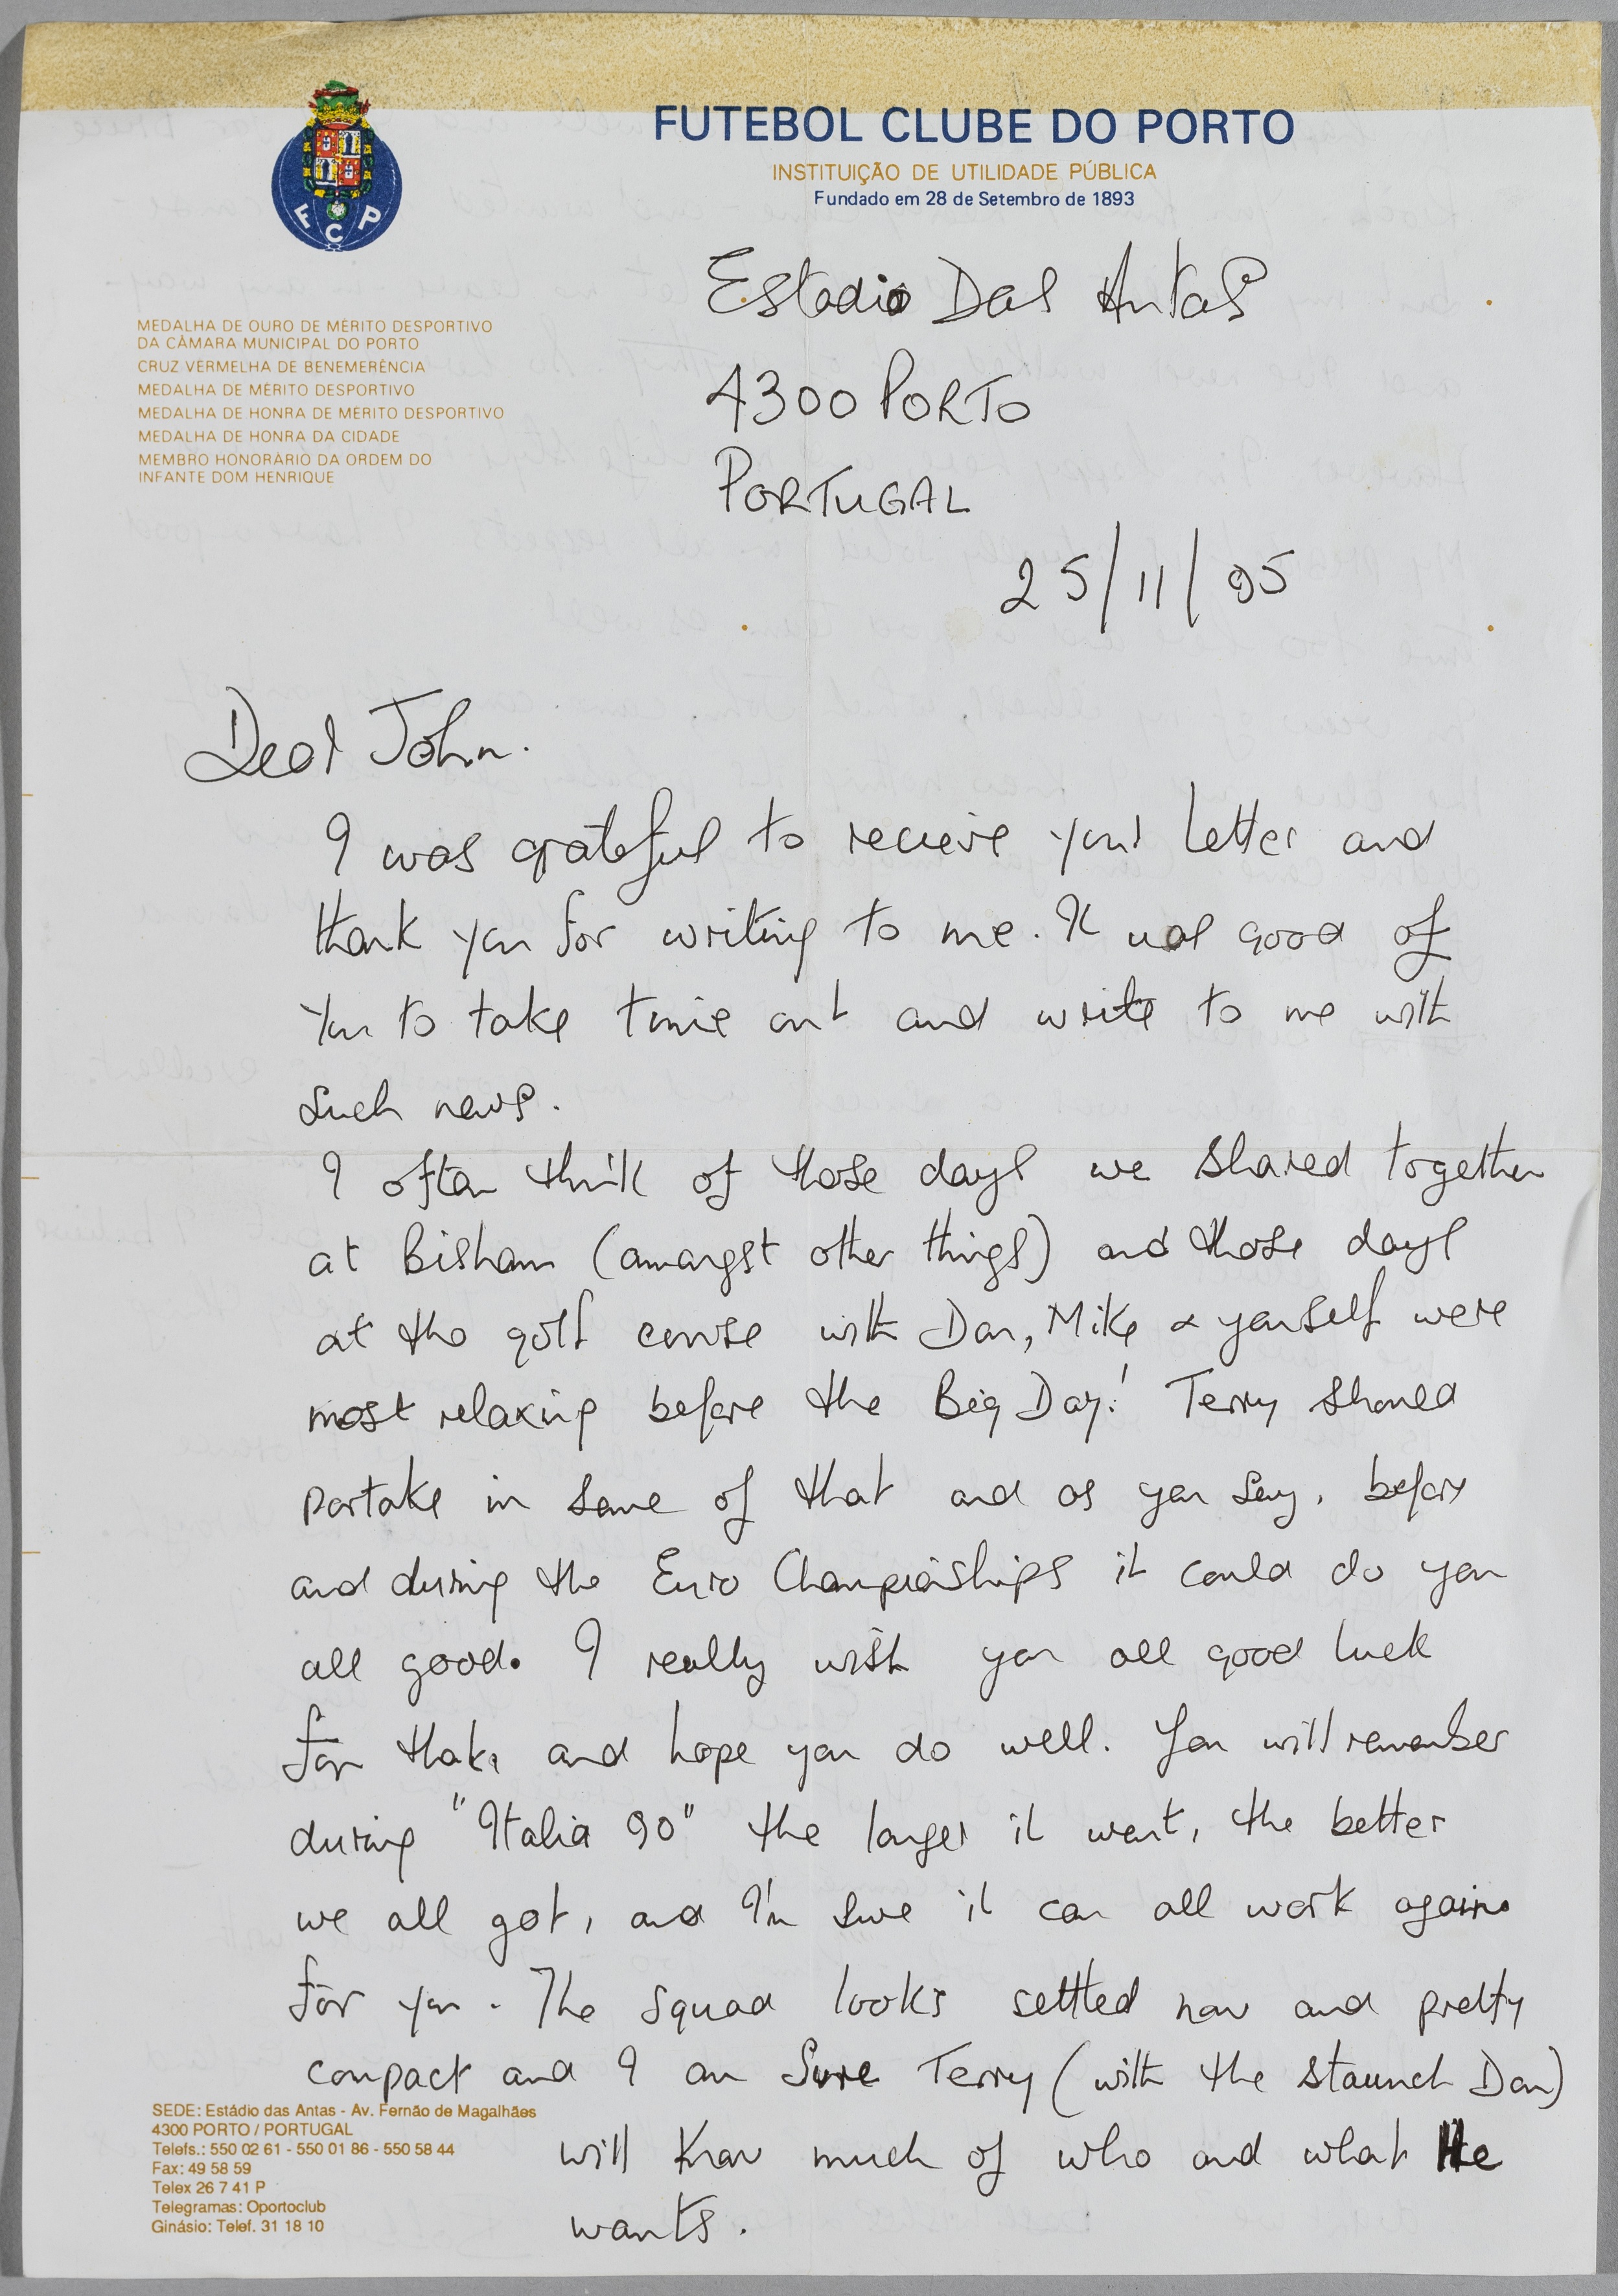 FUTEBOL CLUBE DO PORTO
INSTITUIÇÃO DE UTILIDADE PÚBLICA
Fundado em 28 de Setembro de 1893
F C P
Estadio Das Antas
4300 PORTO
PORTUGAL
25/11/95
MEDALHA DE OURO DE MÉRITO DESPORTIVO
DA CÂMARA MUNICIPAL DO PORTO
CRUZ VERMELHA DE BENEMERÊNCIA
MEDALHA DE MÉRITO DESPORTIVO
MEDALHA DE HONRA DE MÉRITO DESPORTIVO
MEDALHA DE HONRA DA CIDADE
MEMBRO HONORÁRIO DA ORDEM DO
INFANTE DOM HENRIQUE
Dear John.
I was grateful to recieve your letter and
thank you for writing to me. It was good of
you to take time out and write to me with
such news.
I often think of those days we shared together
at Bisham (amongst other things) and those days
at the golf course with Don, Mike & yourself were
most relaxing before the Big Day! Terry should
partake in some of that and as you say, before
and during the Euro Championships it could do you
all good. I really wish you all good luck
for that, and hope you do well. You will remember
during "Italia 90" the longer it went, the better
we all got, and I'm sure it can all work again
for you. The squad looks settled now and pretty
compact and I am Sure Terry (with the staunch Don)
will know much of who and what He
wants.
SEDE: Estádio das Antas - Av. Fernão de Magalhães
4300 PORTO / PORTUGAL
Telefs.: 550 02 61 - 550 01 86 - 550 58 44
Fax: 49 58 59
Telex 26 7 41 P
Telegramas: Oportoclub
Ginásio: Telef. 31 18 10